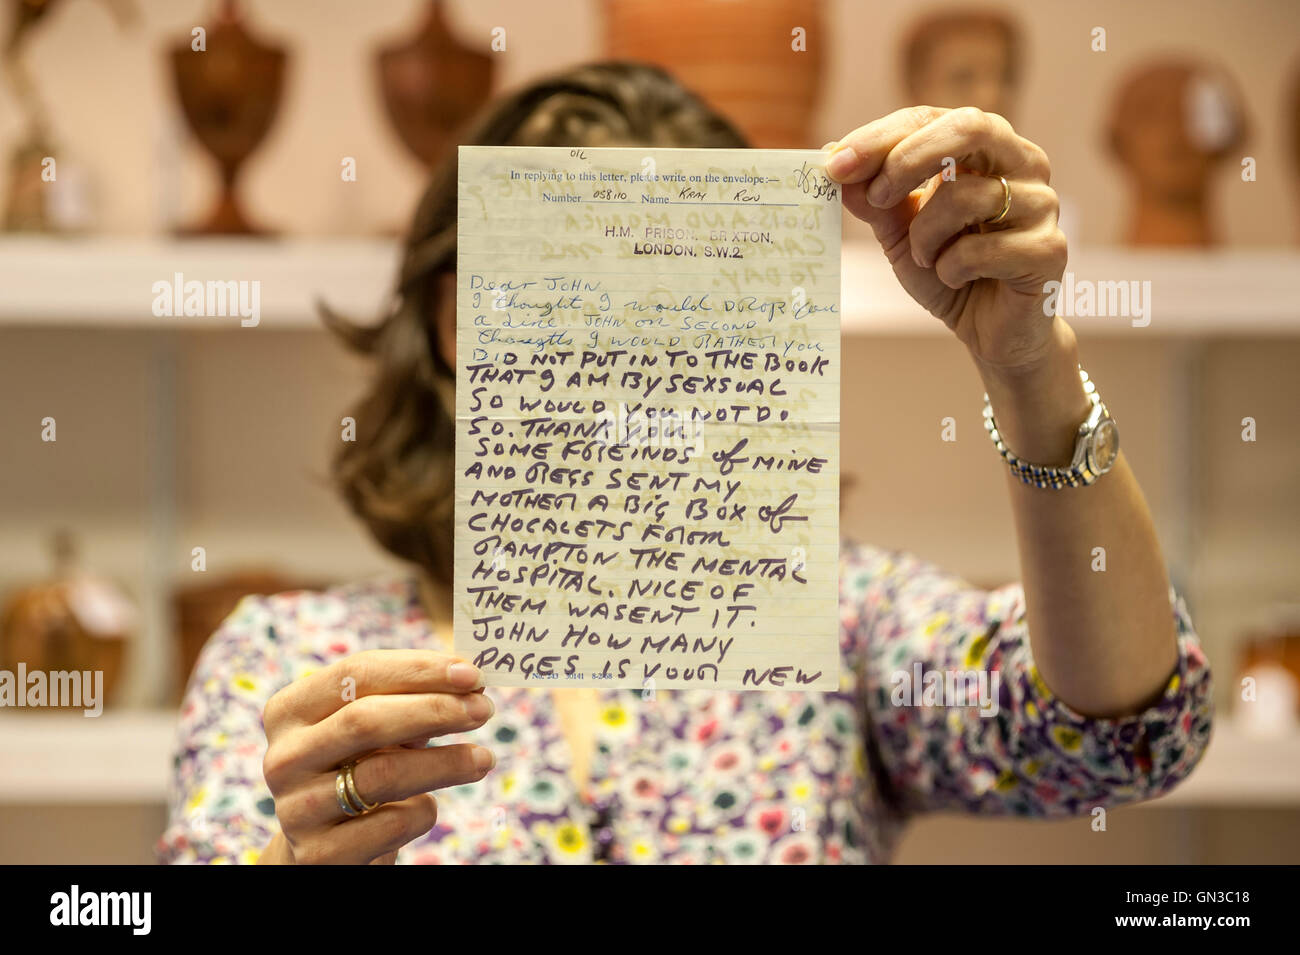 OIL
In replying to this letter, please write on the envelope:—
Number 058110 Name KRAY RON
H.M. PRISON, BRIXTON,
LONDON, S.W.2.
Dear JOHN
I thought I would DROP you
a line. JOHN on SECOND
thougths I WOULD RATHER you
DID NOT PUT IN TO THE BOOK
THAT I AM BY SEXSUAL
SO WOULD YOU NOT DO
SO. THANK YOU.
SOME FREINDS of MINE
AND REGS SENT MY
MOTHER A BIG BOX of
CHOCALETS FROM
RAMPTON THE MENTAL
HOSPITAL. NICE OF
THEM WASENT IT.
JOHN HOW MANY
PAGES IS YOUR NEW
No. 243 30141 8-2-68
TODAY.
a alamy stock photo
alamy
Image ID: GN3C18
www.alamy.com